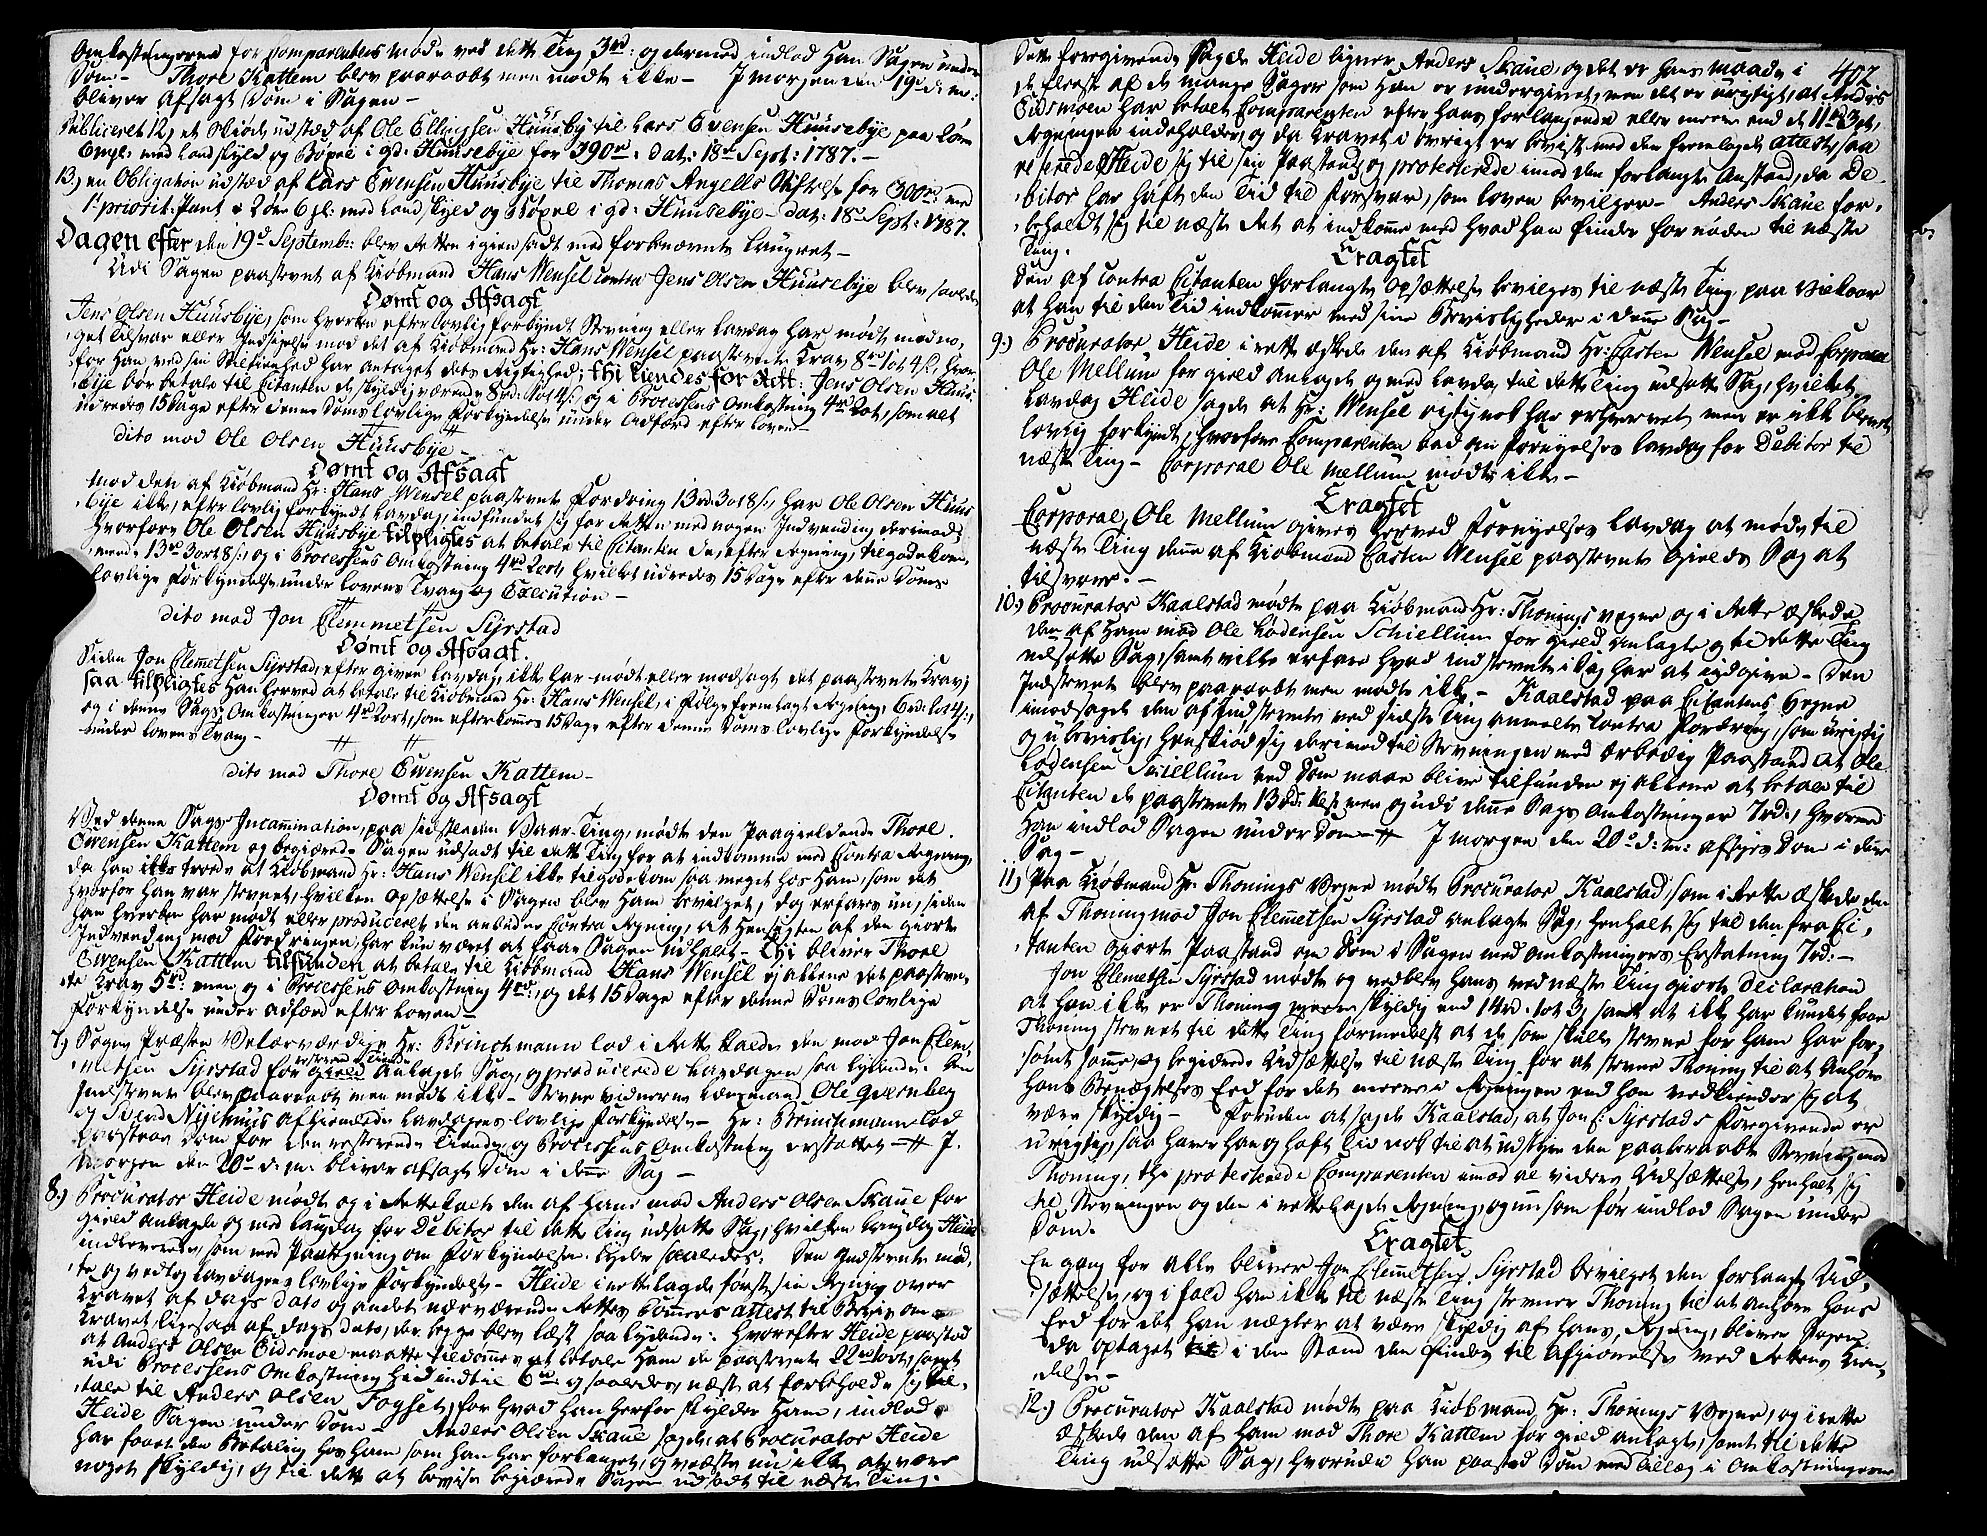 Omkostningerne for Comparentens Møde ved dette Ting 3rd: og dermed indlod Han Sagen under
Dom – Thore Kattem blev paaraabt men mødte ikke – I morgen den 19de d: m:
bliver afsagt Dom i Sagen –
Publiceret 12, et Skiøde udstæd af Ole Ellingsen Huusby til Lars Evensen Huusebye paa 2 Øre
6 mgl: med Landskyld og Bøxel i gd: Huusebye for 390rd: dat: 18de Sept: 1787. –
13,) en Obligation udstæd af Lars Evensen Huusbye til Thomas Angells Stiftelse for 300rd: med
1te priorit: Pant i 2 Øre 6 gl: med Landskyld og Bøxel i gd: Huusebye – dat: 18de Sept: 1787.
Dagen efter den 19de Septembr: blev Retten igien sadt med forbenævnte Laugret –
Udi Sagen paastevnet af Kiøbmand Hans Wensel contra Jens Olsen Huusebye blev saaledes
Dømt og Afsagt
Jens Olsen Huusbye, som hverken efter lovlig forkyndt Stevning eller Lavdag har mødt med no-
get Tilsvar eller Indsigelse mod det af Kiøbmand Hr: Hans Wensel paastevnte Krav 8rd 1ort 4s:, hvor-
for Han ved sin Stiltienhed har antaget dets Rigtighed; thi kiendes for Rett: Jens Olsen Huus-
bye bør betale til Citanten de skyldig værende 8rd: 1ort 4s: og i Processens Omkostning 4rd 2ort, som alt
udredes 15 Dage efter denne Doms lovlige Forkyndelse under Adfærd efter Loven –
dito mod Ole Olsen Huusbye –
Dømt og Afsagt
Mod den af Kiøbmand Hr: Hans Wensel paastevnte Fordring 13rd 3ort 8s:, har Ole Olsen Huus-
bye ikke, efter lovlig forkyndt Lavdag, indfundet sig for Retten med nogen Indvending derimod;
Hvorfore Ole Olsen Huusbye tilpligtes at betale til Citanten de, efter Regning, tilgodekom-
mende 13rd 3ort 8s: og i Processens Omkostning 4rd 2ort, hvilket udredes 15 Dage efter denne Doms
lovlige Forkyndelse under Lovens Tvang og Execution –
dito mod Jon Clemmetsen Syrstad
Dømt og Afsagt.
Siden Jon Clemetsen Syrstad, efter given Lavdag, ikke har mødt eller modsagt det paastevnte Krav;
saa tilpligtes Han herved at betale til Kiøbmand Hr: Hans Wensel, i Følge fremlagt Regning, 6rd: 1ort 4s:,
og i denne Sags Omkostninger 4rd 2ort, som efterkommes 15 Dage efter denne Doms lovlige Forkyndelse
under Lovens Tvang –
dito mod Thore Evensen Kattem –
Dømt og Afsagt
Ved denne Sags Incamination, paa sidstleden Vaar-Ting, mødte den Paagieldende Thore
Evensen Kattem og begiærede Sagen udsadt til dette Ting for at indkomme med Contra Regning,
da Han ikke troede at Kiøbmand Hr: Hans Wensel ikke tilgodekom saa meget hos Ham, som det
hvorfor Han var stevnet, hvilken Opsættelse i Sagen blev Ham bevilget, dog erfares nu, siden
Han hverken har mødt eller produceret den anbudne Contra Regning, at Hensigten af den giorte
Indvending mod Fordringen, har kun været at faae Sagen udhalet – Thi bliver Thore
Evensen Kattem tilfunden at betale til Kiøbmand Hans Wensel ej allene det paastevn-
te Krav 5rd: men og i Processens Omkostning 4rd:, og det 15 Dage efter denne Doms lovlige
Forkyndelse under Adfærd efter Loven –
7,) Sogne Præsten Velærværdige Hr: Brinchmann lod i Rette kalde den mod Jon Clem-
metsen Syrstad for resterende Tiende anlagde Sag, og producerede Lavdagen saa lydende: Den
Indstevnte blev paaraabt men mødte ikke – Stevne Vidnerne Lænsmand Ole Qvernberg
og Svend Nyehuus afhiemlede Lavdagens lovlige Forkyndelse – Hr: Brinchmann lod
paastaae Dom for den resterende Tiende og Processens Omkostning erstattet – I
Morgen den 20de d: m: bliver afsagt Dom i denne Sag –
8,) Procurator Heide mødte og i Rettekalte den af Ham mod Anders Olsen Skaue for
Gield anlagde og med Laugdag for Debitor til dette Ting udsatte Sag, hvilken Laugdag Heide
indleverede, som med Paategning om Forkyndelse lyder saaledes: Den Indstevnte mød-
te og vedtog Lavdagens lovlige Forkyndelse – Heide irettelagde først sin Regning over
Kravet af Dags dato og andet nærværende Rettes Commers attest til Beviis om
Kravet, ligesaa af Dags dato, der begge blev læst saa lydende: Hvorefter Heide paastod
at Anders Olsen Eidsmoe maatte tildømmes at betale Ham de paastevnte 22rd 1ort, samt
udi Processens Omkostning Hidindtil 6rd og saaledes, næst at forbeholde sig til-
tale til Anders Olsen Togset, for hvad Han herfor skylder Ham, indlod
Heide Sagen under Dom – Anders Olsen Skaue sagde at Procurator Heide
har faaet den Betaling hos Ham som Han har forlanget, og veedste nu ikke at være
noget skyldig, og til dette at bevise begiærede Sagen udsadt til næste Ting.
402
Dette foregivende sagde Heide ligner Anders Skaue og det er Hans Maade i
de fleste af de mange Sager som Han er undergivet, men det er urigtigt, at Anders
Eidsmoen har betalt Comparenten efter Hans forlangende eller meere end de 11rd 3ort,
Regningen indeholder, og da Kravet i øvrigt er bevist med den fremlagde Attest, saa
refererede Heide sig til sin Paastand og protesterede imod den forlangte Anstand, da De-
bitor har haft den Tid til Forsvar, som Loven bevilger – Anders Skaue for-
beholdt sig til næste Ret at indkomme med hvad Han finder fornøden til næste
Ting.
Eragtet
Den af Contra Citanten forlangte Opsættelse bevilges til næste Ting paa Vilkaar
at Han til den Tid indkommer med sine Bevisligheder i denne Sag –
9,) Procurator Heide i rette æskede den af Kiøbmand Hr: Casten Wensel mod Corporal
Ole Mellum for gield anlagde og med Lavdag til dette Ting udsatte Sag, hvilket
Lavdag Heide sagde at Hr: Wensel vistnok har erhvervet men er ikke blevet
lovlig forkyndt, hvorfore Comparenten bad om Fornyelses Lavdag for Debitor til
næste Ting – Corporal Ole Mellum mødte ikke –
Eragtet
Corporal Ole Mellum gives herved Fornyelses Lavdag at møde til
næste Ting denne af Kiøbmand Casten Wensel paastevnte Gields Sag at
tilsvare. –
10,) Procurator Kaalstad mødte paa Kiøbmand Hr: Thonings vegne og i Rette æskede
den af Ham mod Ole Lodensen Schiellum for gield anlagte og til dette Ting
udsatte Sag, samt ville erfare hvad Indstevnte i Sag har at andgive – Den
Indstevnte blev paaraabt men mødte ikke – Kaalstad paa Citantens Vegne
imodsagde den af Indstevnte ved sidste Ting anmelte Contra Fordring, som urigtig
og ubevislig, henskiød sig derimod til Stevningen med ærbødig Paastand at Ole
Lodensen Skiellum ved Dom maae blive tilfunden ej allene at betale til
Citanten de paastevnte 13rd: men og udi denne Sags Omkostninger 7rd:, hvormed
Han indlod Sagen under Dom – I morgen den 20de d: m: afsiges Dom i denne
Sag –
11,) Paa Kiøbmand Hr: Thonings Vegne mødte Procurator Kaalstad, som i Rette Æskede den
af Thoning mod Jon Clemmetsen Syrstad anlagte Sag, henholt sig til den fra Ci-
tanten giorte Paastand om Dom i Sagen med Omkostningers Erstatning 7rd: –
Jon Clemetsen Syrstad mødte og vedblev Hans ved næste Ting giorte Declaration
at Han ikke er Thoning meere skyldig end 14rd 1ort 3s, samt at ikke har kundet faae
Thoning stevnet til dette Ting formedelst at de som skulle stevne for Ham har for-
sømt samme, og begiærede Udsættelse til næste Ting for at stevne Thoning til at Anhøre
Hans Benægtelses Eed for det meere i Regningen end Han vedkiender sig at
være skyldig – Foruden at sagde Kaalstad, at Jon C: Syrstads Foregivende er
urigtig, saa haver Han og haft Tid nok til at udstyre den paaberaabte Stevning mod
Thoning, thi protesterede Comparenten imod al videre Udsættelse, henholt sig
til Stevningen og den i rettelagde Regning, og nu som før indlod Sagen under
Dom.
Eragtet
En gang for alle bliver Jon Clemmetsen Syrstad bevilget den forlangte Ud-
sættelse, og i fald Han ikke til næste Ting stevner Thoning til at anhøre Hans
Eed for det Han nægter at være skyldig af Hans Regning, bliver Sagen
da optaget i den Stand den findes til Afgiørelse med Rettens Kien-
delse –
12,) Procurator Kaalstad mødte paa Kiøbmand Hr: Thonings Vegne, og i rette
æskede den af Ham mod Thore Kattem for gield anlagte, samt til dette
Ting udsatte Sag, hvorudi Han paastod Dom med Tillæg i Omkostningerne